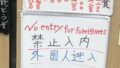 No entry for foreigners
禁止入内
外国人进入